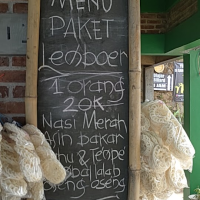 MENU
PAKET
Lemboer
1 orang
20K
Nasi Merah
Asin bakar
Tahu & Tempe
Sambal lalab
Oseng aseng